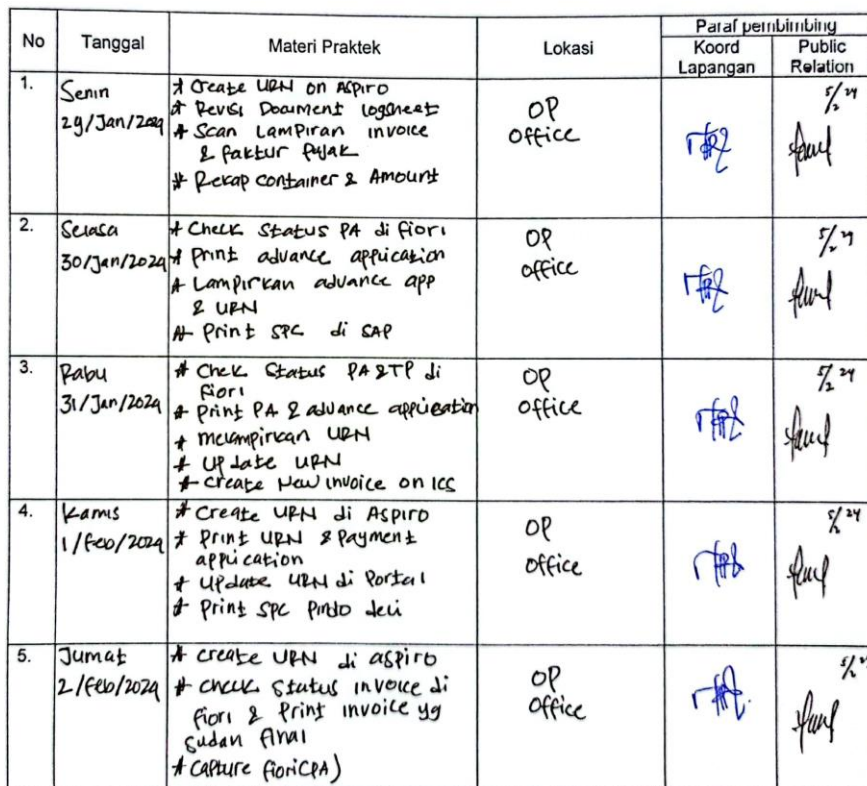 No Tanggal Materi Praktek Lokasi Paraf pembimbing
Koord Lapangan Public Relation
1. Senin
29/Jan/2024
* Create URN on Aspiro
* Revisi Document logsheet
* Scan Lampiran invoice
& faktur Pajak
* Rekap container & Amount
OP
Office
5/2 24
2. Selasa
30/Jan/2024
* Check Status PA di fiori
* print advance application
* Lampirkan advance app
& URN
* Print SPC di SAP
OP
office
5/2 24
3. Rabu
31/Jan/2024
* Chek Status PA & TP di
fiori
* print PA & advance application
* melampirkan URN
* Update URN
* Create New invoice on ICS
OP
Office
5/2 24
4. Kamis
1/Feb/2024
* Create URN di Aspiro
* Print URN & Payment
application
* Update URN di Portal
* Print SPC Pindo deli
OP
Office
5/2 24
5. Jumat
2/Feb/2024
* create URN di aspiro
* check status invoice di
fiori & Print invoice yg
sudah final
* Capture fiori (PA)
OP
Office